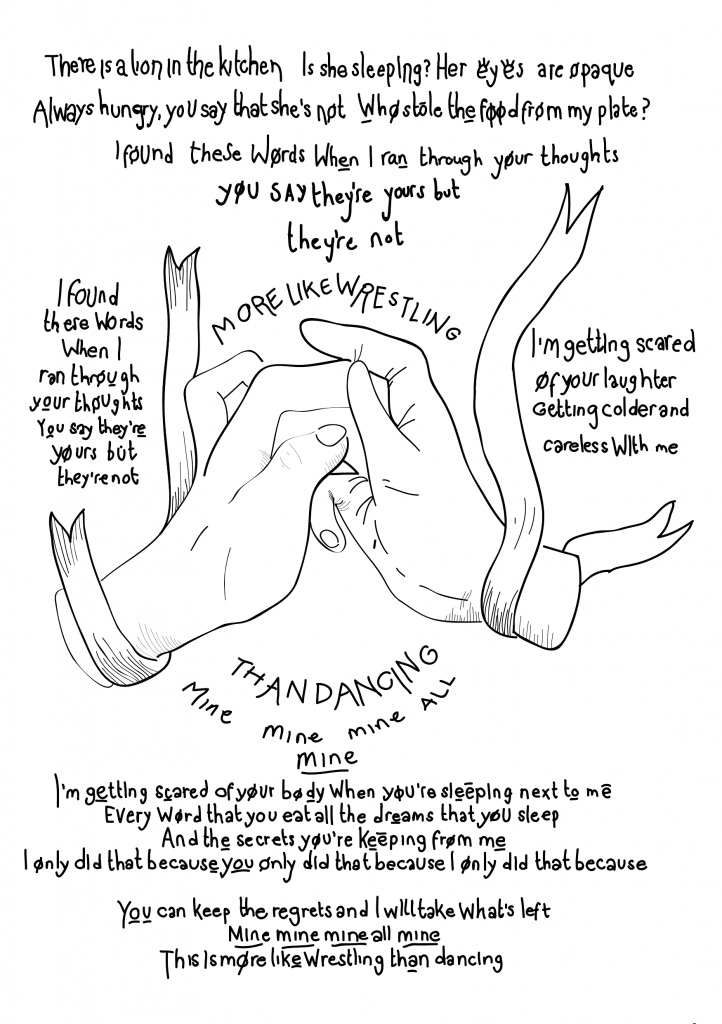 There is a lion in the kitchen Is she sleeping? Her eyes are opaque
Always hungry, you say that she's not Who stole the food from my plate?
I found these Words When I ran through your thoughts
you SAY they're yours but
they're not
MORE LIKE WRESTLING
I found
these Words
When I
ran through
your thoughts
You say they're
yours but
they're not
I'm getting scared
of your laughter
Getting colder and
careless With me
THAN DANCING
Mine mine mine ALL
mine
I'm getting scared of your body When you're sleeping next to me
Every Word that you eat all the dreams that you sleep
And the secrets you're keeping from me
I only did that because you only did that because I only did that because
You can keep the regrets and I will take What's left
Mine mine mine all mine
This Is more like Wrestling than dancing